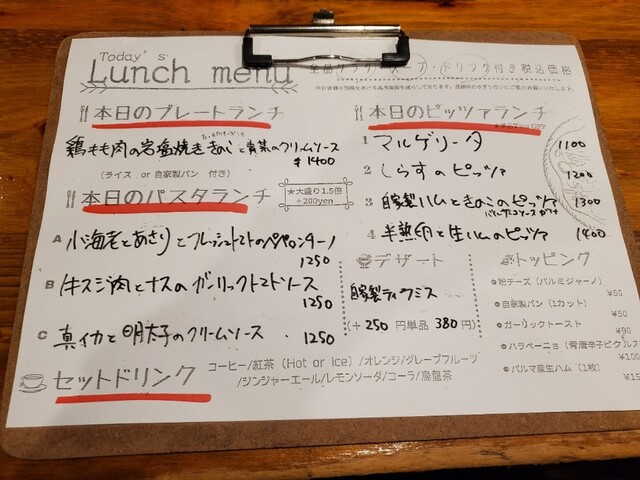 Today's
Lunch menu
全品サラダ・スープ・ドリンク付き税込価格
本日のプレートランチ
鶏もも肉の岩塩焼き きのこと青菜のクリームソース
¥1400
(ライス or 自家製パン 付き)
本日のパスタランチ
★大盛り1.5倍
+200yen
A 小海老とあさりとフレッシュトマトのペペロンチーノ
1250
B 牛スジ肉とナスのガーリックトマトソース
1250
C 真イカと明太子のクリームソース
1250
本日のピッツァランチ
1 マルゲリータ 1100
2 しらすのピッツァ 1200
3 自家製ハムときのこのピッツァ 1300
4 半熟卵と生ハムのピッツァ 1400
デザート
自家製ティラミス
(+250円単品 380円)
トッピング
粉チーズ(パルミジャーノ)
¥50
自家製パン(1カット)
¥50
ガーリックトースト
¥90
ハラペーニョ(青唐辛子ピクルス
¥100
パルマ産生ハム(1枚)
セットドリンク
コーヒー/紅茶(Hot or ice)/オレンジ/グレープフルーツ
/ジンジャーエール/レモンソーダ/コーラ/烏龍茶